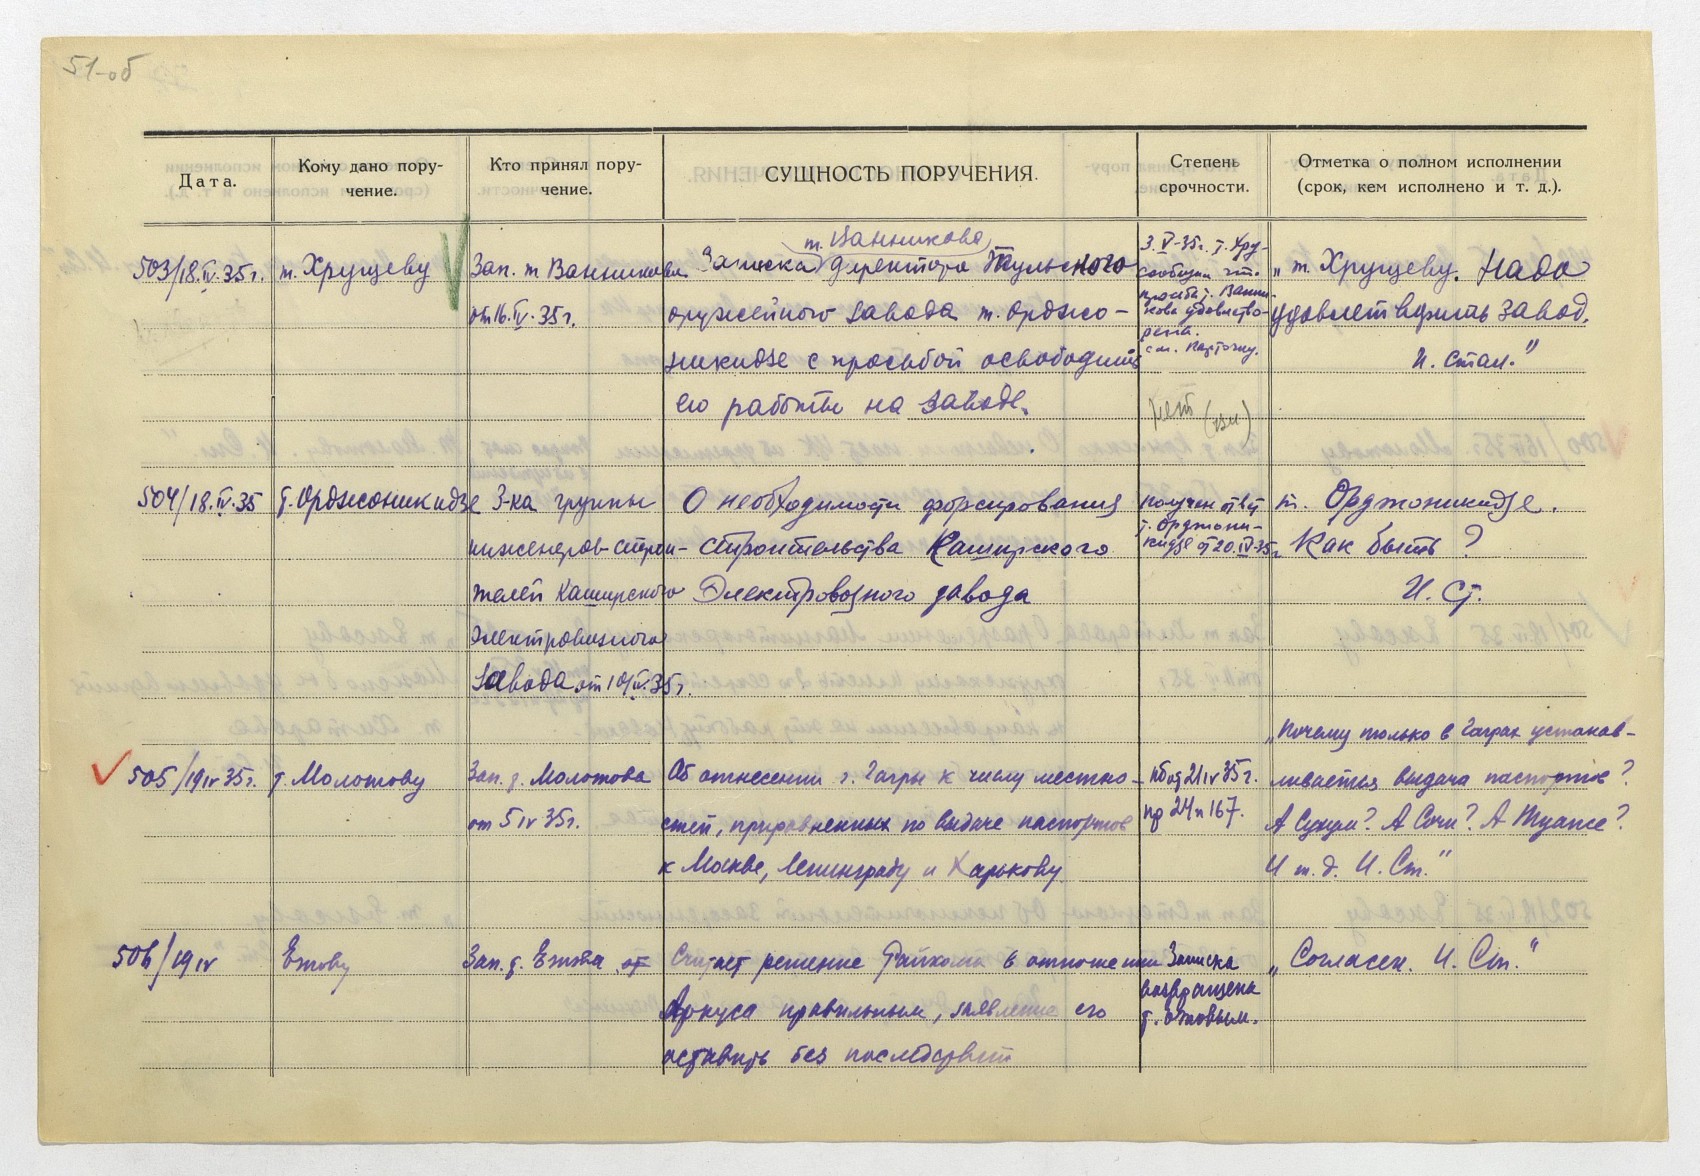 51-об
Дата.
Кому дано пору-
чение.
Кто принял пору-
чение.
СУЩНОСТЬ ПОРУЧЕНИЯ.
Степень
срочности.
Отметка о полном исполнении
(срок, кем исполнено и т. д.).
503/18.IV.35г.
т. Хрущеву
Зап. т Ванникова
от 16.IV.35г.
т. Ванникова
Записка директора Тульского
оружейного завода т. Орджо-
никидзе с просьбой освободить
его работы на заводе.
3.V-35г. т. Хру-
сообщил что
просьба т. Ванни-
кова удовлетво-
рена.
см. карточку.
„т. Хрущеву. Надо
удовлетворить завод.
И. Стал."
504/18.IV.35
т. Орджоникидзе
З-ка группы
инженеров-строи-
телей Каширского
электровозного
завода от 10/IV.35г.
О необходимости форсирования
строительства Каширского
Электровозного завода
получен ответ
т. Орджони-
кидзе от 20.IV-35г
т. Орджоникидзе.
Как быть?
И. Ст.
505/19 IV 35г.
т. Молотову
Зап. т. Молотова
от 5 IV 35г.
Об отнесении г. Гагры к числу местно-
стей, приравненных по выдаче паспортов
к Москве, Ленинграду и Харькову
ПБ от 21 IV 35г.
пр 24 п 167.
„Почему только в Гаграх устанав-
ливается выдача паспортов?
А Сухум? А Сочи? А Туапсе?
И т.д. И. Ст."
506/19 IV
Ежову
Зап. т. Ежова от
Считает решение Райкома в отношении
Аркуса правильным, заявление его
оставить без последствий
Записка
возвращена
т. Ежовым.
„Согласен. И. Ст."